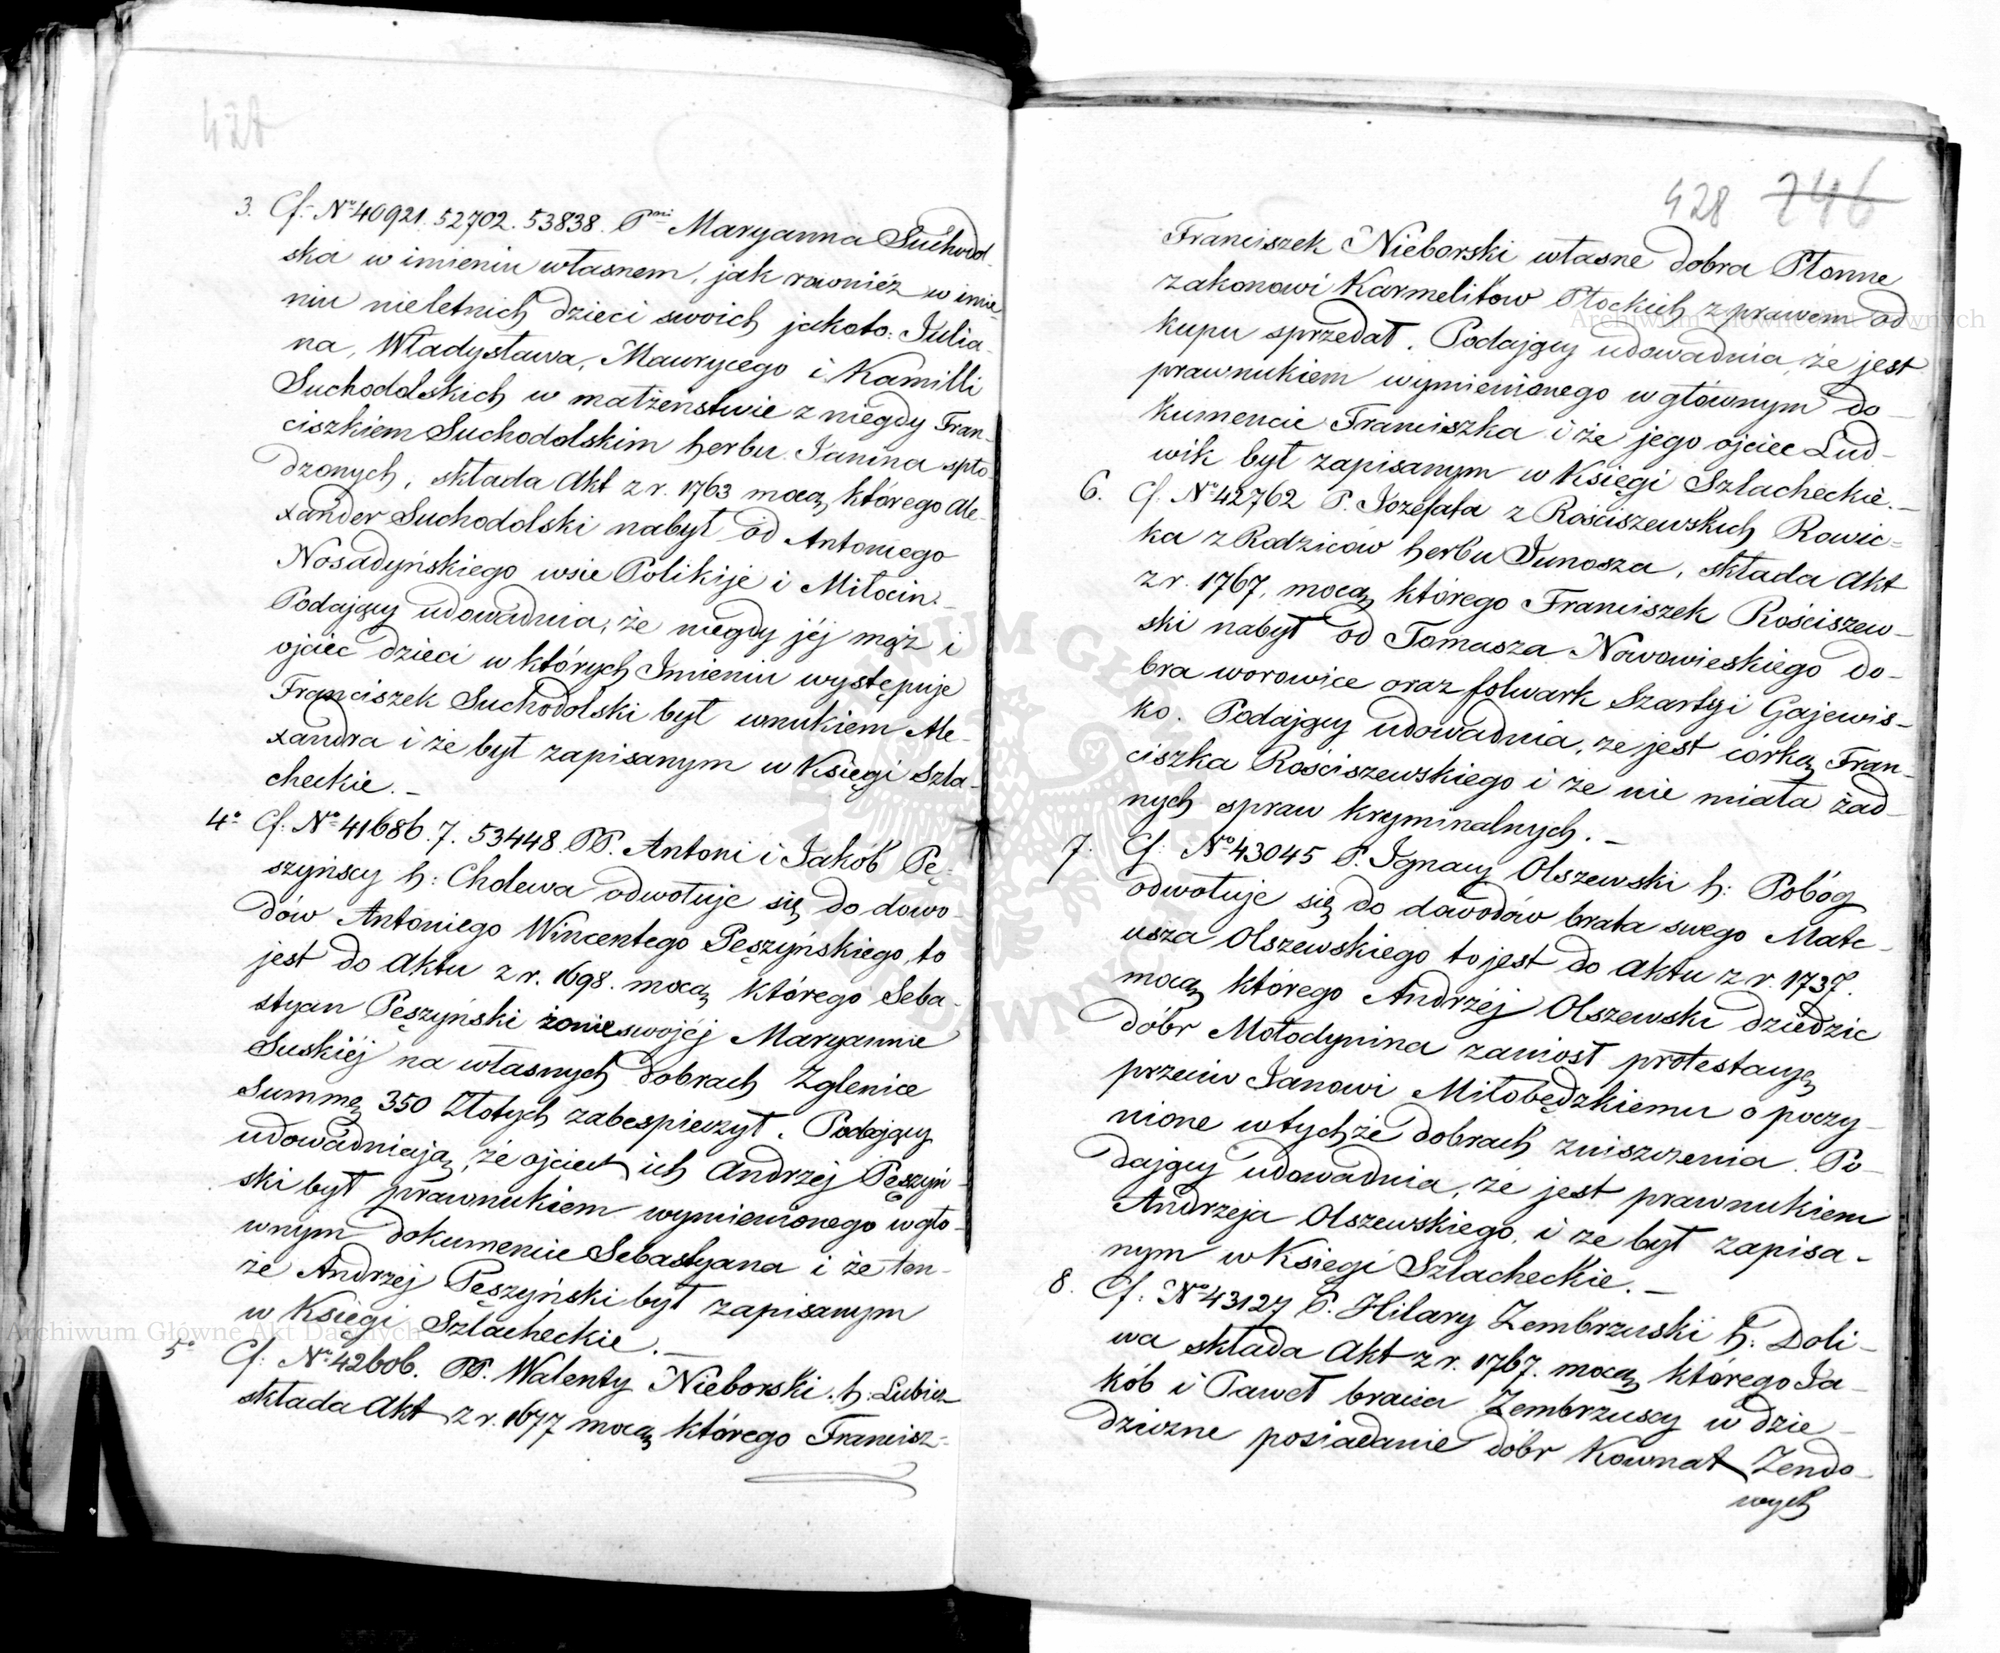 3. Cf. No 40921. 52702. 53838. Pni Maryanna Suchodol-
ska w imieniu własnem, jak rownież w imie-
niu nieletnich dzieci swoich jakoto: Julia-
na, Władysława, Maurycego i Kamilli
Suchodolskich w małżenstwie z niegdy Fran-
ciszkiem Suchodolskim herbu Janina spło-
dzonych, składa Akt z r. 1763 mocą którego Ale-
xander Suchodolski nabył od Antoniego
Nosadyńskiego wsie Polikije i Miłocin.-
Podający udowadnia, że niegdy jéj mąż i
ojciec dzieci w których Imieniu występuje
Franciszek Suchodolski był wnukiem Ale-
xandra i że był zapisanym w Księgi Szla-
checkie.-
4o Cf. No 41686. 7. 53448. PP. Antoni i Jakób Pę-
szyńscy h: Cholewa odwołuje się do dowo-
dów Antoniego Wincentego Pęszyńskiego, to
jest do Aktu z r. 1698. mocą którego Seba-
styan Pęszyński żonie swojéj Maryannie
Suskiéj na własnych dobrach Zglenice
Summę 350 Złotych zabespieczył. Podający
udowadniają, że ojciec ich Andrzéj Pęszyń-
ski był prawnukiem wymienionego w głó-
wnym dokumencie Sebastyana i że ten-
że Andrzéj Pęszyński był zapisanym
w Księgi Szlacheckie.-
5o Cf. No 42606. PP. Walenty Nieborski h: Lubicz
składa Akt z r. 1677 mocą którego Francisz-
427
428 246
Franciszek Nieborski własne dobra Płonne
zakonowi Karmelitów Płockich z prawem od
kupu sprzedał. Podający udowadnia, że jest
prawnukiem wymienionego w głównym do-
kumencie Franciszka i że jego ojciec Lud-
wik był zapisanym w Księgi Szlacheckie.-
6. Cf. No 42762 P. Józefata z Rościszewskich Rowic-
ka z Rodziców herbu Junosza, składa Akt
z r. 1767, mocą którego Franciszek Rościszew-
ski nabył od Tomasza Nowowieskiego do-
bra worowice oraz folwark Szarłyi Gajewis-
ko. Podający udowadnia, że jest córką Fran-
ciszka Rościszewskiego i że nie miała żad-
nych spraw kryminalnych.-
7. Cf. No 43045 P. Ignacy Olszewski h: Pobóg
odwołuje się do dowodów brata swego Mate-
usza Olszewskiego to jest do Aktu z r. 1737.
mocą którego Andrzéj Olszewski dziedzic
dóbr Mołodynina zaniosł protestacyę
przeciw Janowi Miłobędzkiemu o poczy-
nione w tychże dobrach zniszczenia. Po-
dający udowadnia, że jest prawnukiem
Andrzeja Olszewskiego, i że był zapisa-
nym w Księgi Szlacheckie.-
8. Cf. No 43127 P. Hilary Zembrzuski h: Doli-
wa składa Akt z r. 1767. mocą którego Ja-
kób i Paweł bracia Zembrzuscy w dzie-
dziczne posiadanie dóbr Kownat Zendo-
wych
Archiwum Główne Akt Dawnych
Archiwum Główne Akt Dawnych
ARCHIWUM GŁÓWNE AKT DAWNYCH